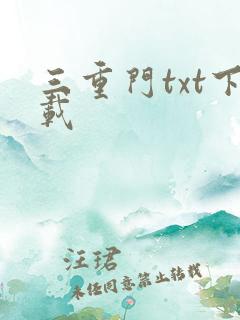 三重門txt下
載
汪珺
未经同意禁止转载